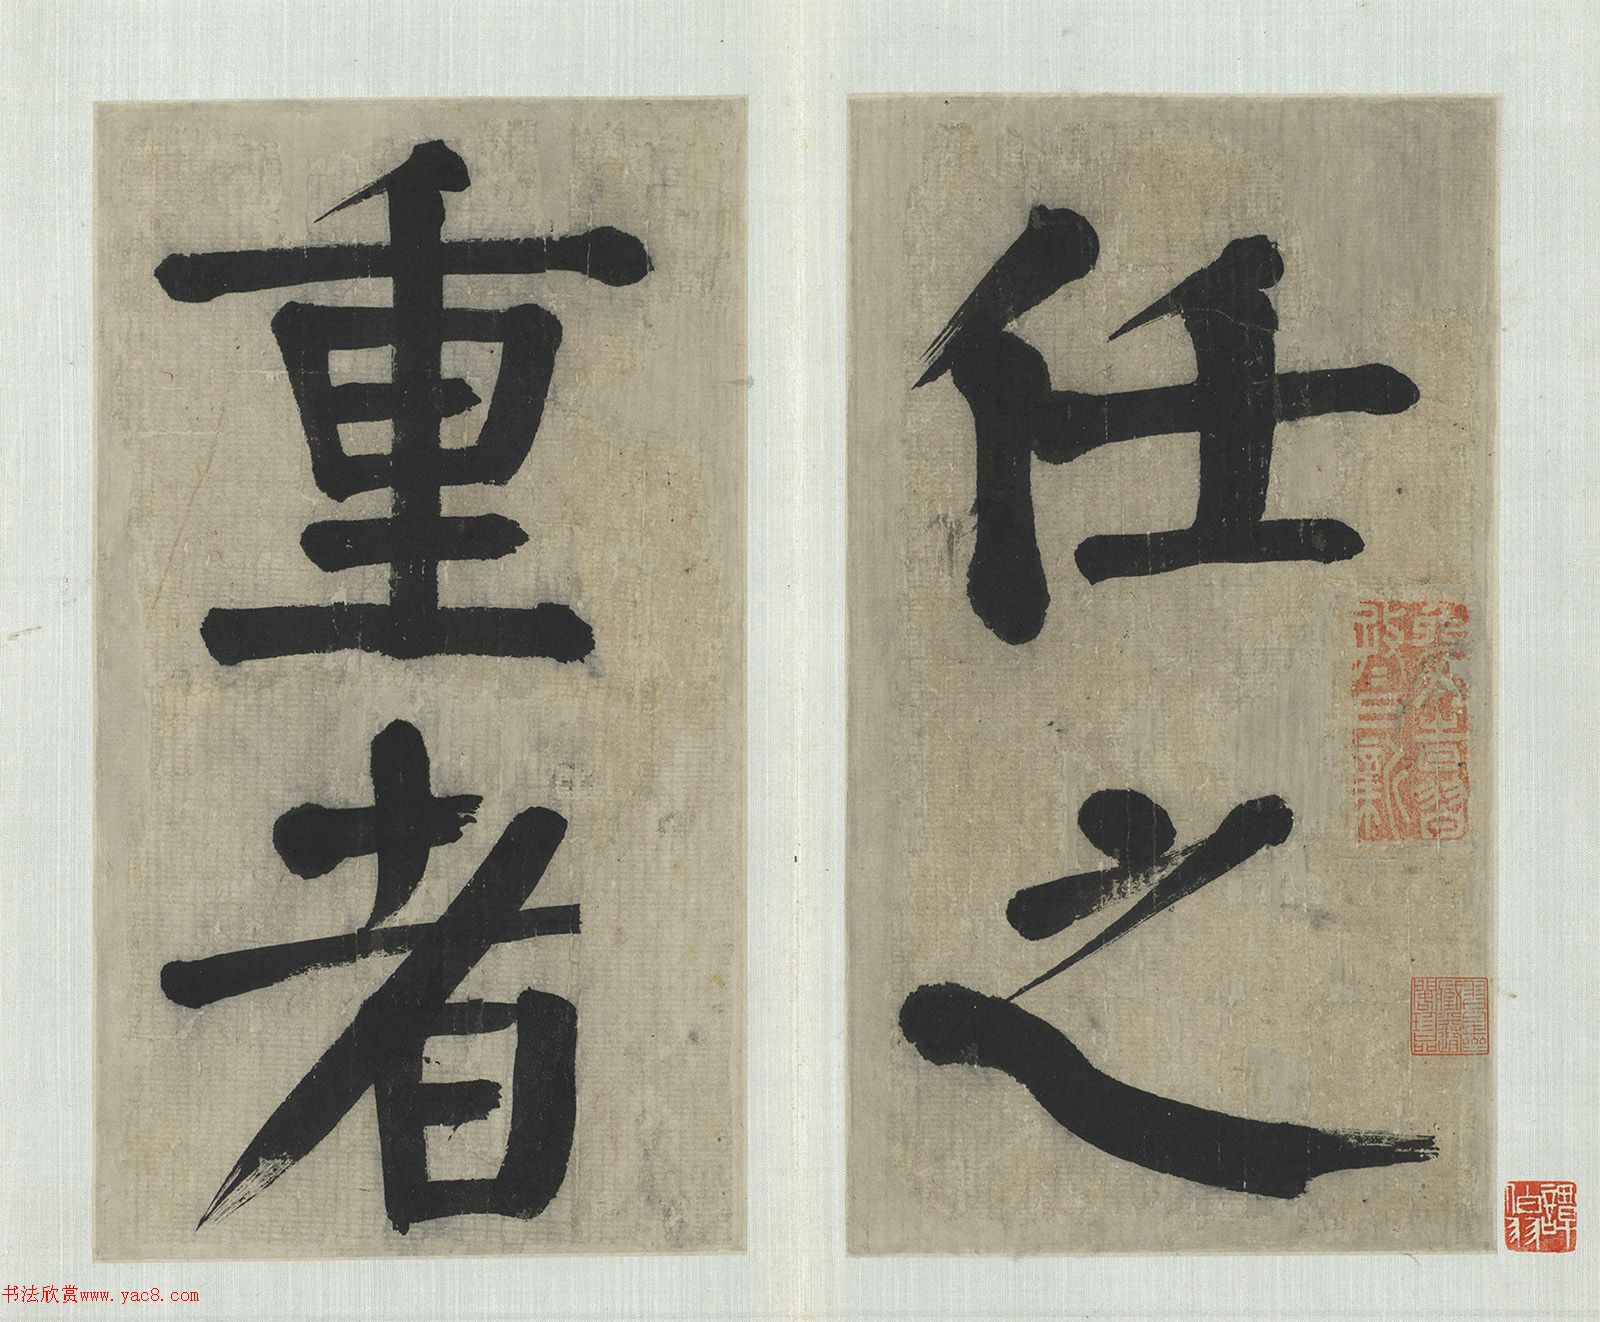 任之
重者
譚伯羽
书法欣赏www.yac8.com